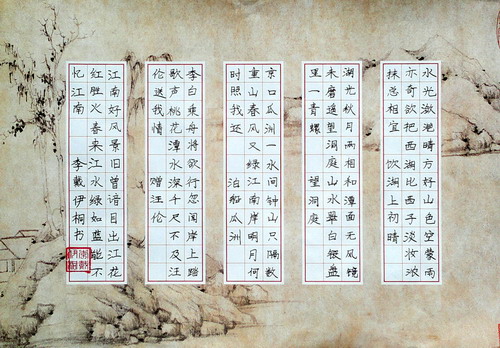 水光潋滟晴方好山色空蒙雨
亦奇欲把西湖比西子淡妆浓
抹总相宜 饮湖上初晴
湖光秋月两相和潭面无风镜
未磨遥望洞庭山水翠白银盘
里一青螺 望洞庭
京口瓜洲一水间钟山只隔数
重山春风又绿江南岸明月何
时照我还 泊船瓜洲
李白乘舟将欲行忽闻岸上踏
歌声桃花潭水深千尺不及汪
伦送我情 赠汪伦
江南好风景旧曾谙日出江花
红胜火春来江水绿如蓝能不
忆江南 李戴伊桐书